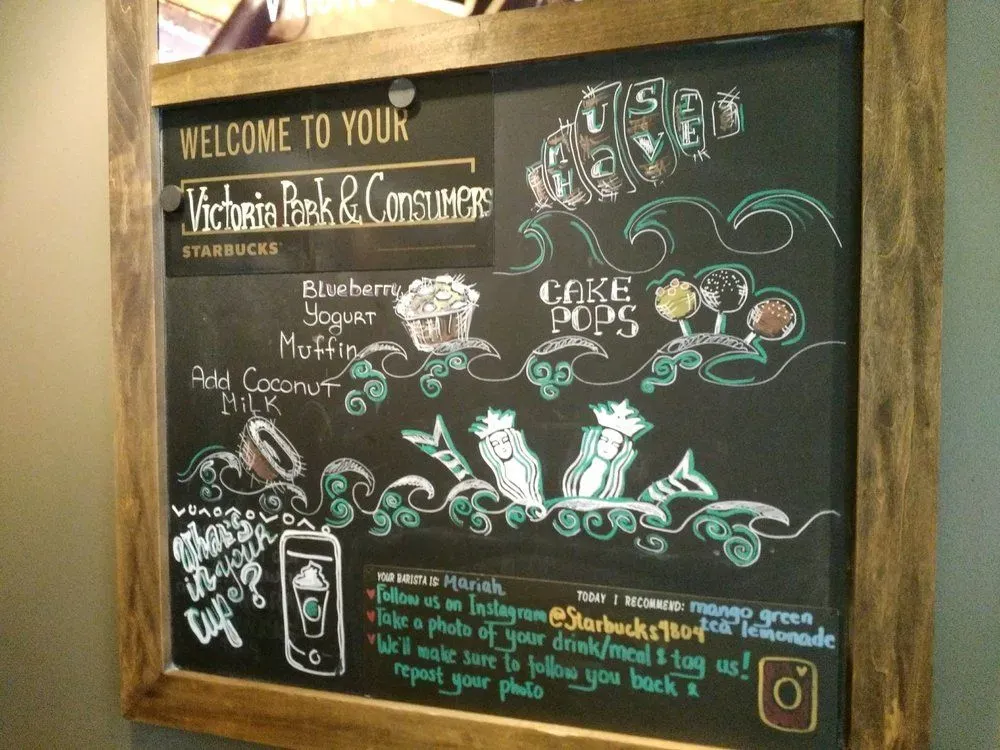 WELCOME TO YOUR
Victoria Park & Consumers
STARBUCKS
MUST
HAVE
Blueberry
Yogurt
Muffin
CAKE
POPS
Add Coconut
Milk
What's
in your
cup?
YOUR BARISTA IS: Mariah
TODAY I RECOMMEND: mango green
tea lemonade
Follow us on Instagram @Starbucks9804
Take a photo of your drink/meal & tag us!
We'll make sure to follow you back &
repost your photo